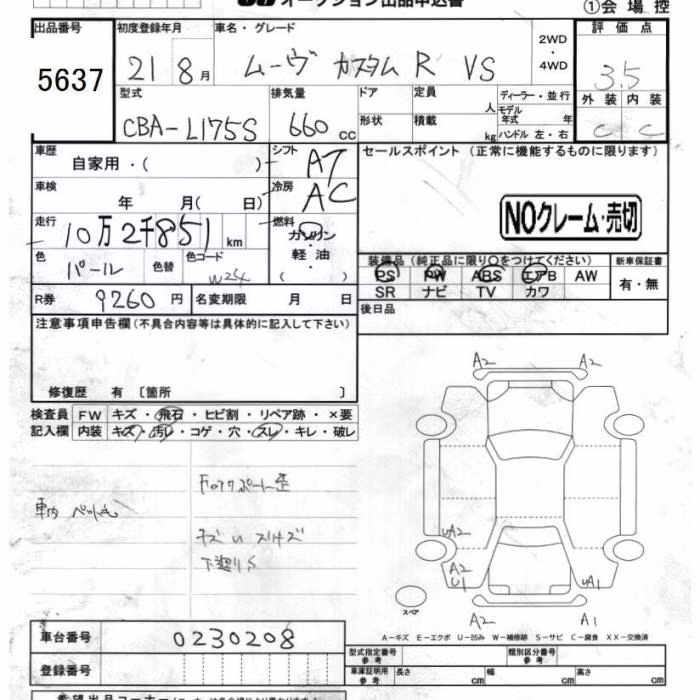 オークション出品申込書
①会場控
出品番号
5637
初度登録年月
21 8月
車名・グレード
ムーヴ カスタム R VS
2WD
・
4WD
評価点
3.5
外装 内装
C C
型式
CBA-L175S
排気量
660cc
ドア
形状
定員
人
積載
kg
ディーラー・並行
モデル
年式 年
ハンドル 左・右
車歴
自家用・( )
シフト
AT
車検
年 月( 日)
冷房
AC
走行
10万2千851km
燃料
ガソリン
・
軽油
( )
色
パール
色替
色コード
W24
R券 9260円
名変期限 月 日
セールスポイント(正常に機能するものに限ります)
NOクレーム・売切
装備品(純正品に限り○をつけてください)
新車保証書
PS PW ABS エアB AW
SR ナビ TV カワ
有・無
後日品
注意事項申告欄(不具合内容等は具体的に記入して下さい)
修復歴 有 〔箇所 〕
検査員
記入欄
FW キズ・飛石・ヒビ割・リペア跡・×要
内装 キズ・汚レ・コゲ・穴・スレ・キレ・破レ
車内
下廻りS
A2 A2
UA2
A2
U1
UA1
A2 A1
スペア
A-キズ E-エクボ U-凹み W-補修跡 S-サビ C-腐食 XX-交換済
車台番号
0230208
登録番号
型式指定番号
参考
類別区分番号
参考
車庫証明用
参考
長さ cm
幅 cm
高さ cm